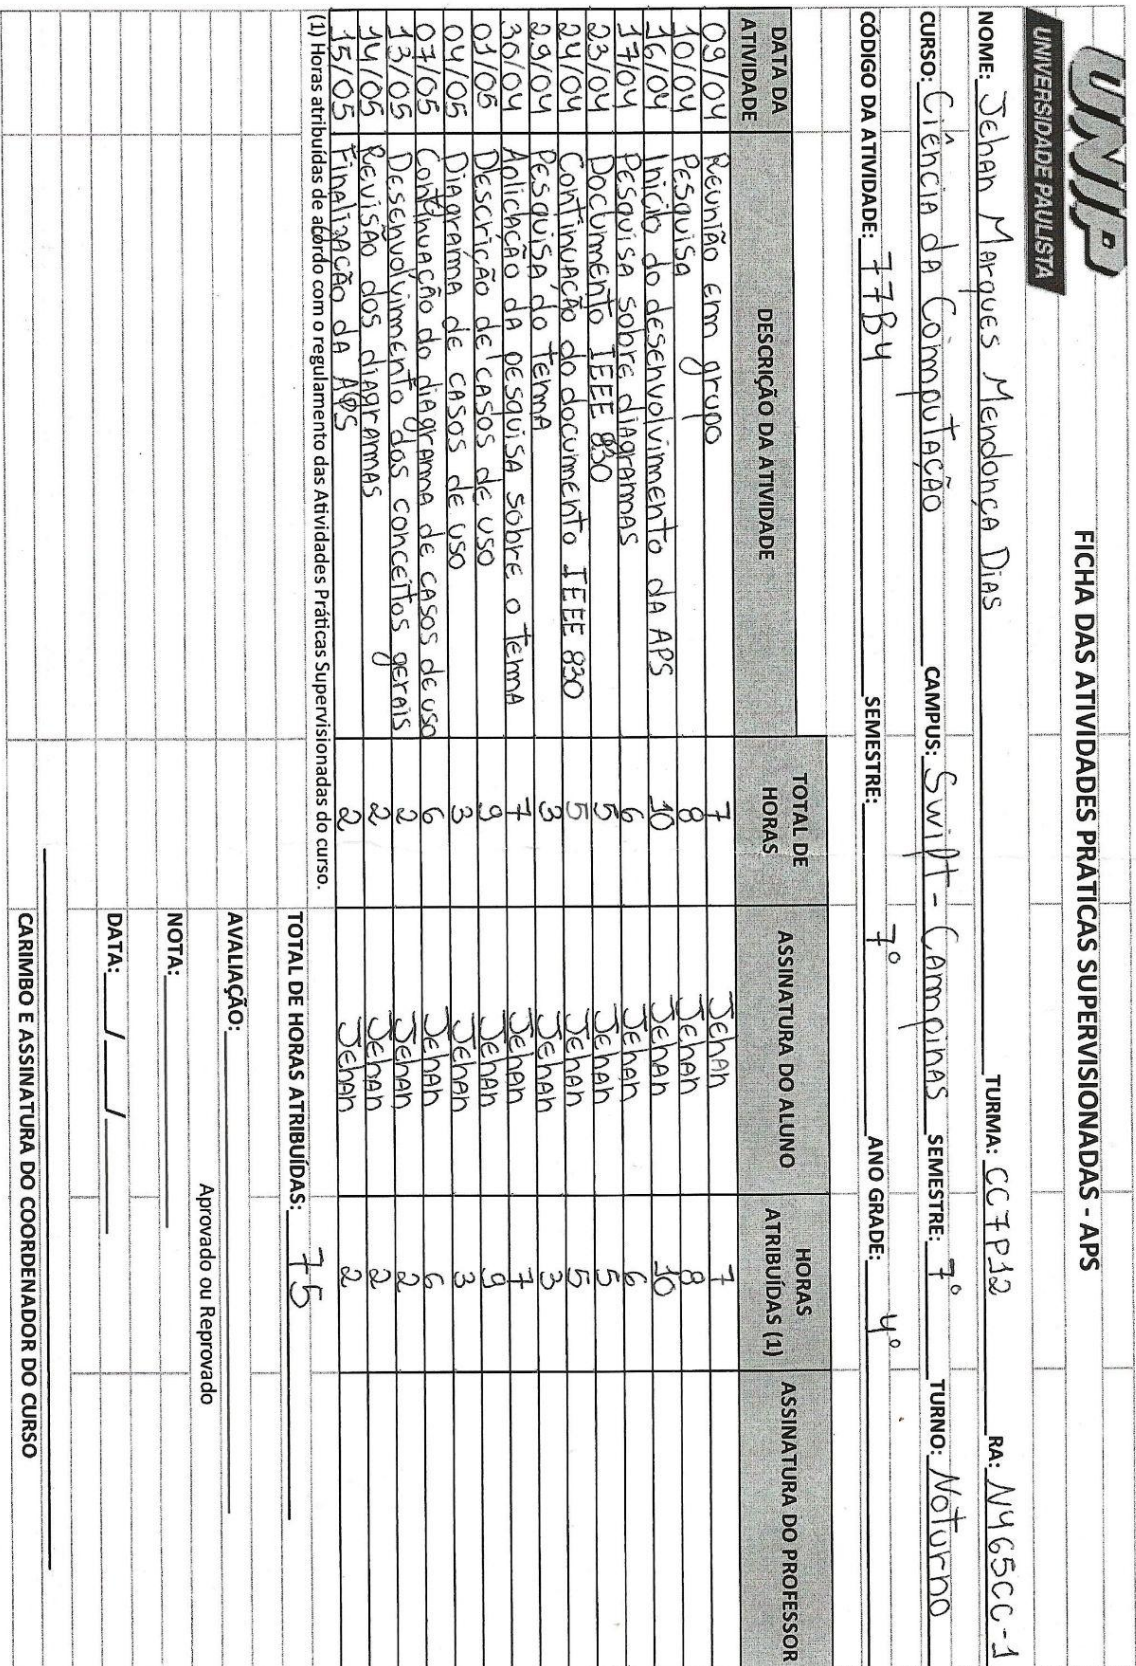 UNIP
UNIVERSIDADE PAULISTA
FICHA DAS ATIVIDADES PRÁTICAS SUPERVISIONADAS - APS
NOME: Jehan Marques Mendonça Dias TURMA: CC7P12 RA: N465CC-1
CURSO: Ciência da Computação CAMPUS: Swift - Campinas SEMESTRE: 7º TURNO: Noturno
CÓDIGO DA ATIVIDADE: 77B4 SEMESTRE: 7º ANO GRADE: 4º
DATA DA ATIVIDADE DESCRIÇÃO DA ATIVIDADE TOTAL DE HORAS ASSINATURA DO ALUNO HORAS ATRIBUÍDAS (1) ASSINATURA DO PROFESSOR
09/04 Reunião em grupo 7 Jehan 7
10/04 Pesquisa 8 Jehan 8
16/04 Inicio do desenvolvimento da APS 10 Jehan 10
17/04 Pesquisa sobre diagramas 6 Jehan 6
23/04 Documento IEEE 830 5 Jehan 5
24/04 Continuação do documento IEEE 830 5 Jehan 5
29/04 Pesquisa do tema 3 Jehan 3
30/04 Aplicação da pesquisa sobre o tema 7 Jehan 7
01/05 Descrição de casos de uso 9 Jehan 9
04/05 Diagrama de casos de uso 3 Jehan 3
07/05 Continuação do diagrama de casos de uso 6 Jehan 6
13/05 Desenvolvimento dos conceitos gerais 2 Jehan 2
14/05 Revisão dos diagramas 2 Jehan 2
15/05 Finalização da APS 2 Jehan 2
(1) Horas atribuídas de acordo com o regulamento das Atividades Práticas Supervisionadas do curso.
TOTAL DE HORAS ATRIBUÍDAS: 75
AVALIAÇÃO:
Aprovado ou Reprovado
NOTA:
DATA: / /
CARIMBO E ASSINATURA DO COORDENADOR DO CURSO